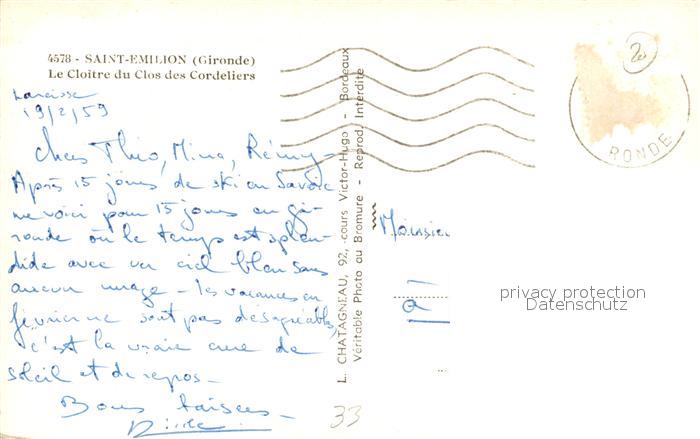 4578 - SAINT-EMILION (Gironde)
Le Cloître du Clos des Cordeliers
19/2/59
Chers Théo, Mina, Rémy -
Après 15 jours de ski en Savoie
me voici pour 15 jours en Gi-
ronde où le temps est splen-
dide avec un ciel bleu sans
aucun nuage - les vacances en
février ne sont pas désagréables,
c'est la vraie cure de
soleil et de repos -
Bons baisers -
33
L. CHATAGNEAU, 92, cours Victor-Hugo - Bordeaux
Véritable Photo au Bromure - Reprod. Interdite
Monsieur
à
20
RONDE
privacy protection
Datenschutz